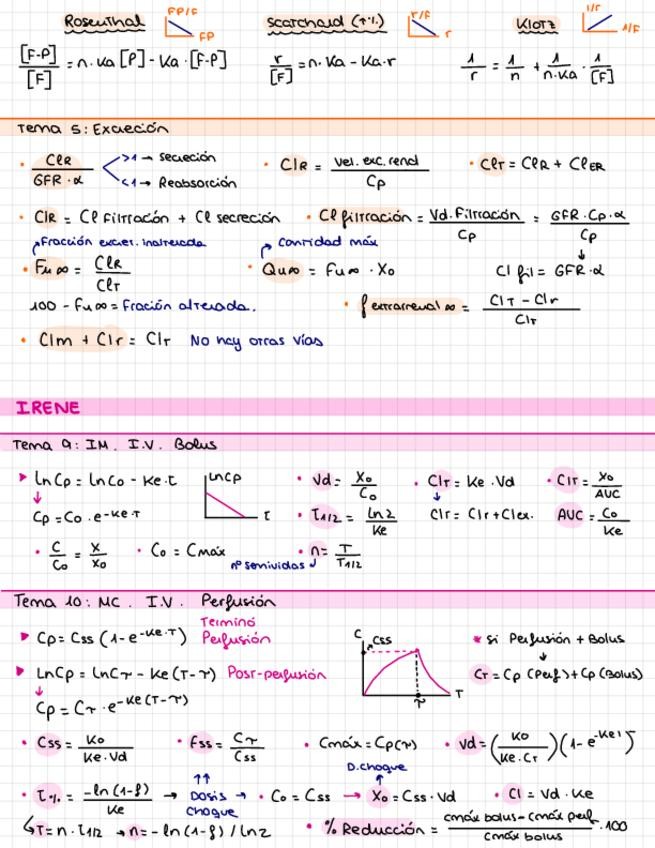 Rosenthal FP/F FP Scatchard (↑%) r/F r Klotz 1/r 1/F
[F-P]/[F] = n · Ka [P] - Ka · [F-P] r/[F] = n · Ka - Ka · r 1/r = 1/n + 1/(n · Ka) · 1/[F]
Tema 5: Excreción
• ClR/(GFR · α) >1 → Secreción <1 → Reabsorción • ClR = Vel. exc. renal/Cp • ClT = ClR + ClER
• ClR = Cl Filtración + Cl secreción • Cl filtración = Vd. Filtración/Cp = GFR · Cp · α/Cp
Fracción excret. inalterada Cantidad máx
• Fu∞ = ClR/ClT • Qu∞ = Fu∞ · X0 Cl fil = GFR · α
100 - Fu∞ = Fración alterada. • f extrarrenal ∞ = (ClT - Clr)/ClT
• Clm + Clr = ClT No hay otras vías
IRENE
Tema 9: IM. I.V. Bolus
▸ ln Cp = ln C0 - Ke · t ln Cp t • Vd = X0/C0 • ClT = Ke · Vd • ClT = X0/AUC
↓ Cp = C0 · e^-Ke·t • t1/2 = ln2/Ke ClT = Clr + Clex. AUC = C0/Ke
• C/C0 = X/X0 • C0 = Cmáx nº semividas • n = T/T1/2
Tema 10: MC. I.V. Perfusión
▸ Cp = Css (1 - e^-Ke·T) Terminó Perfusión C Css τ T * si Perfusión + Bolus
▸ ln Cp = ln Cτ - Ke (T - τ) Post-perfusión Cτ = Cp (Perf) + Cp (Bolus)
↓ Cp = Cτ · e^-Ke(T-τ)
• Css = K0/(Ke · Vd) • Fss = Cτ/Css • Cmáx = Cp(τ) • Vd = (K0/(Ke · Cτ))(1 - e^-Keτ)
D. choque
• t% = -ln (1-f)/Ke → Dosis choque → • C0 = Css → X0 = Css · Vd • Cl = Vd · Ke
↳ T = n · t1/2 → n = - ln (1-f) / ln2 • % Reducción = (Cmáx bolus - Cmáx perf)/Cmáx bolus · 100